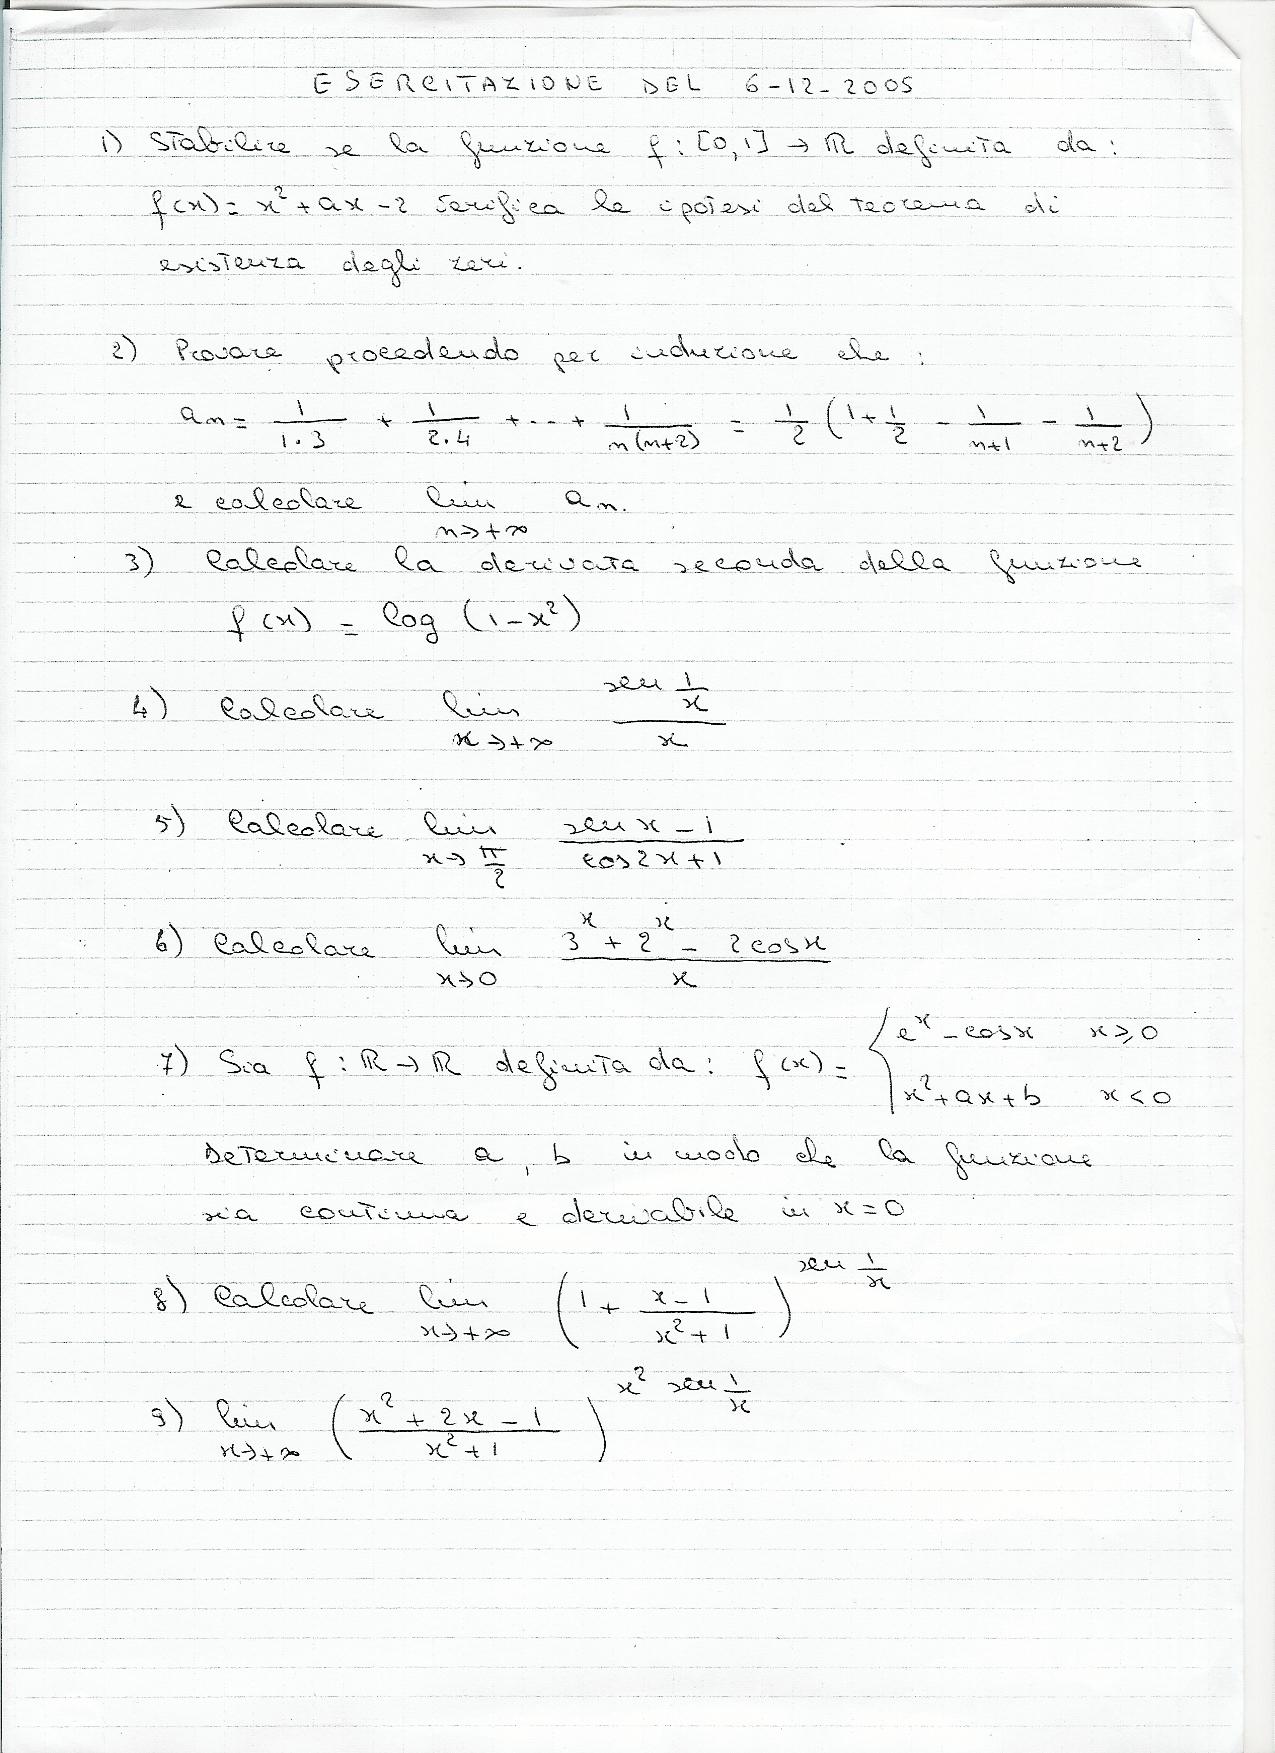 ESERCITAZIONE DEL 6-12-2005
1) Stabilire se la funzione f : [0,1] → ℝ definita da :
f(x) = x² + ax - 2 verifica le ipotesi del teorema di
esistenza degli zeri.
2) Provare procedendo per induzione che :
aₙ = 1/(1·3) + 1/(2·4) + ··· + 1/(n(n+2)) = 1/2 (1 + 1/2 - 1/(n+1) - 1/(n+2))
e calcolare lim n→+∞ aₙ.
3) Calcolare la derivata seconda della funzione
f(x) = log (1-x²)
4) Calcolare lim x→+∞ (sen 1/x)/x
5) Calcolare lim x→π/2 (sen x - 1)/(cos 2x + 1)
6) Calcolare lim x→0 (3ˣ + 2ˣ - 2cos x)/x
7) Sia f : ℝ → ℝ definita da : f(x) = { eˣ - cos x x ≥ 0
x² + ax + b x < 0
Determinare a, b in modo che la funzione
sia continua e derivabile in x = 0
8) Calcolare lim x→+∞ (1 + (x-1)/(x²+1))^(sen 1/x)
9) lim x→+∞ ((x² + 2x - 1)/(x² + 1))^(x² sen 1/x)